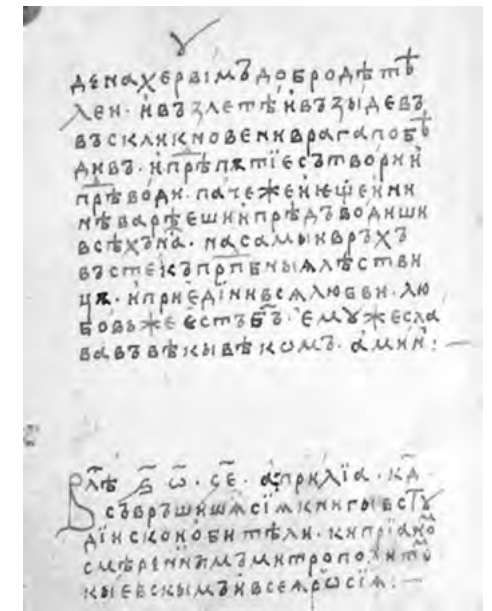 денахервімъдобродѣтѣ
лен · ивъзлетѣ ивъзыдевъ
въскликновениврагапобѣ
дивъ · ипрѣпѫтїесътворий
прѣводи · пачежеиющеини
нѣварѣешиипрѣдъводиши
всѣхъна · насамыивръхъ
въстекъпрпбныѧлѣстви
цѫ · иприединивсѧлюбви · лю
бовьжеестъб҃ъ · емꙋжесла
вавъвѣкывѣкомъ · амин :—
Влѣ ѕ҃ ѿ · ч҃е · априлїа · к҃д
съвръшишѧсїѧкнигывстꙋ
дїискоиобители · кипрїано
смѣреннымъмитрополито
кыевскымъивсеѧрѡсїѧ :—